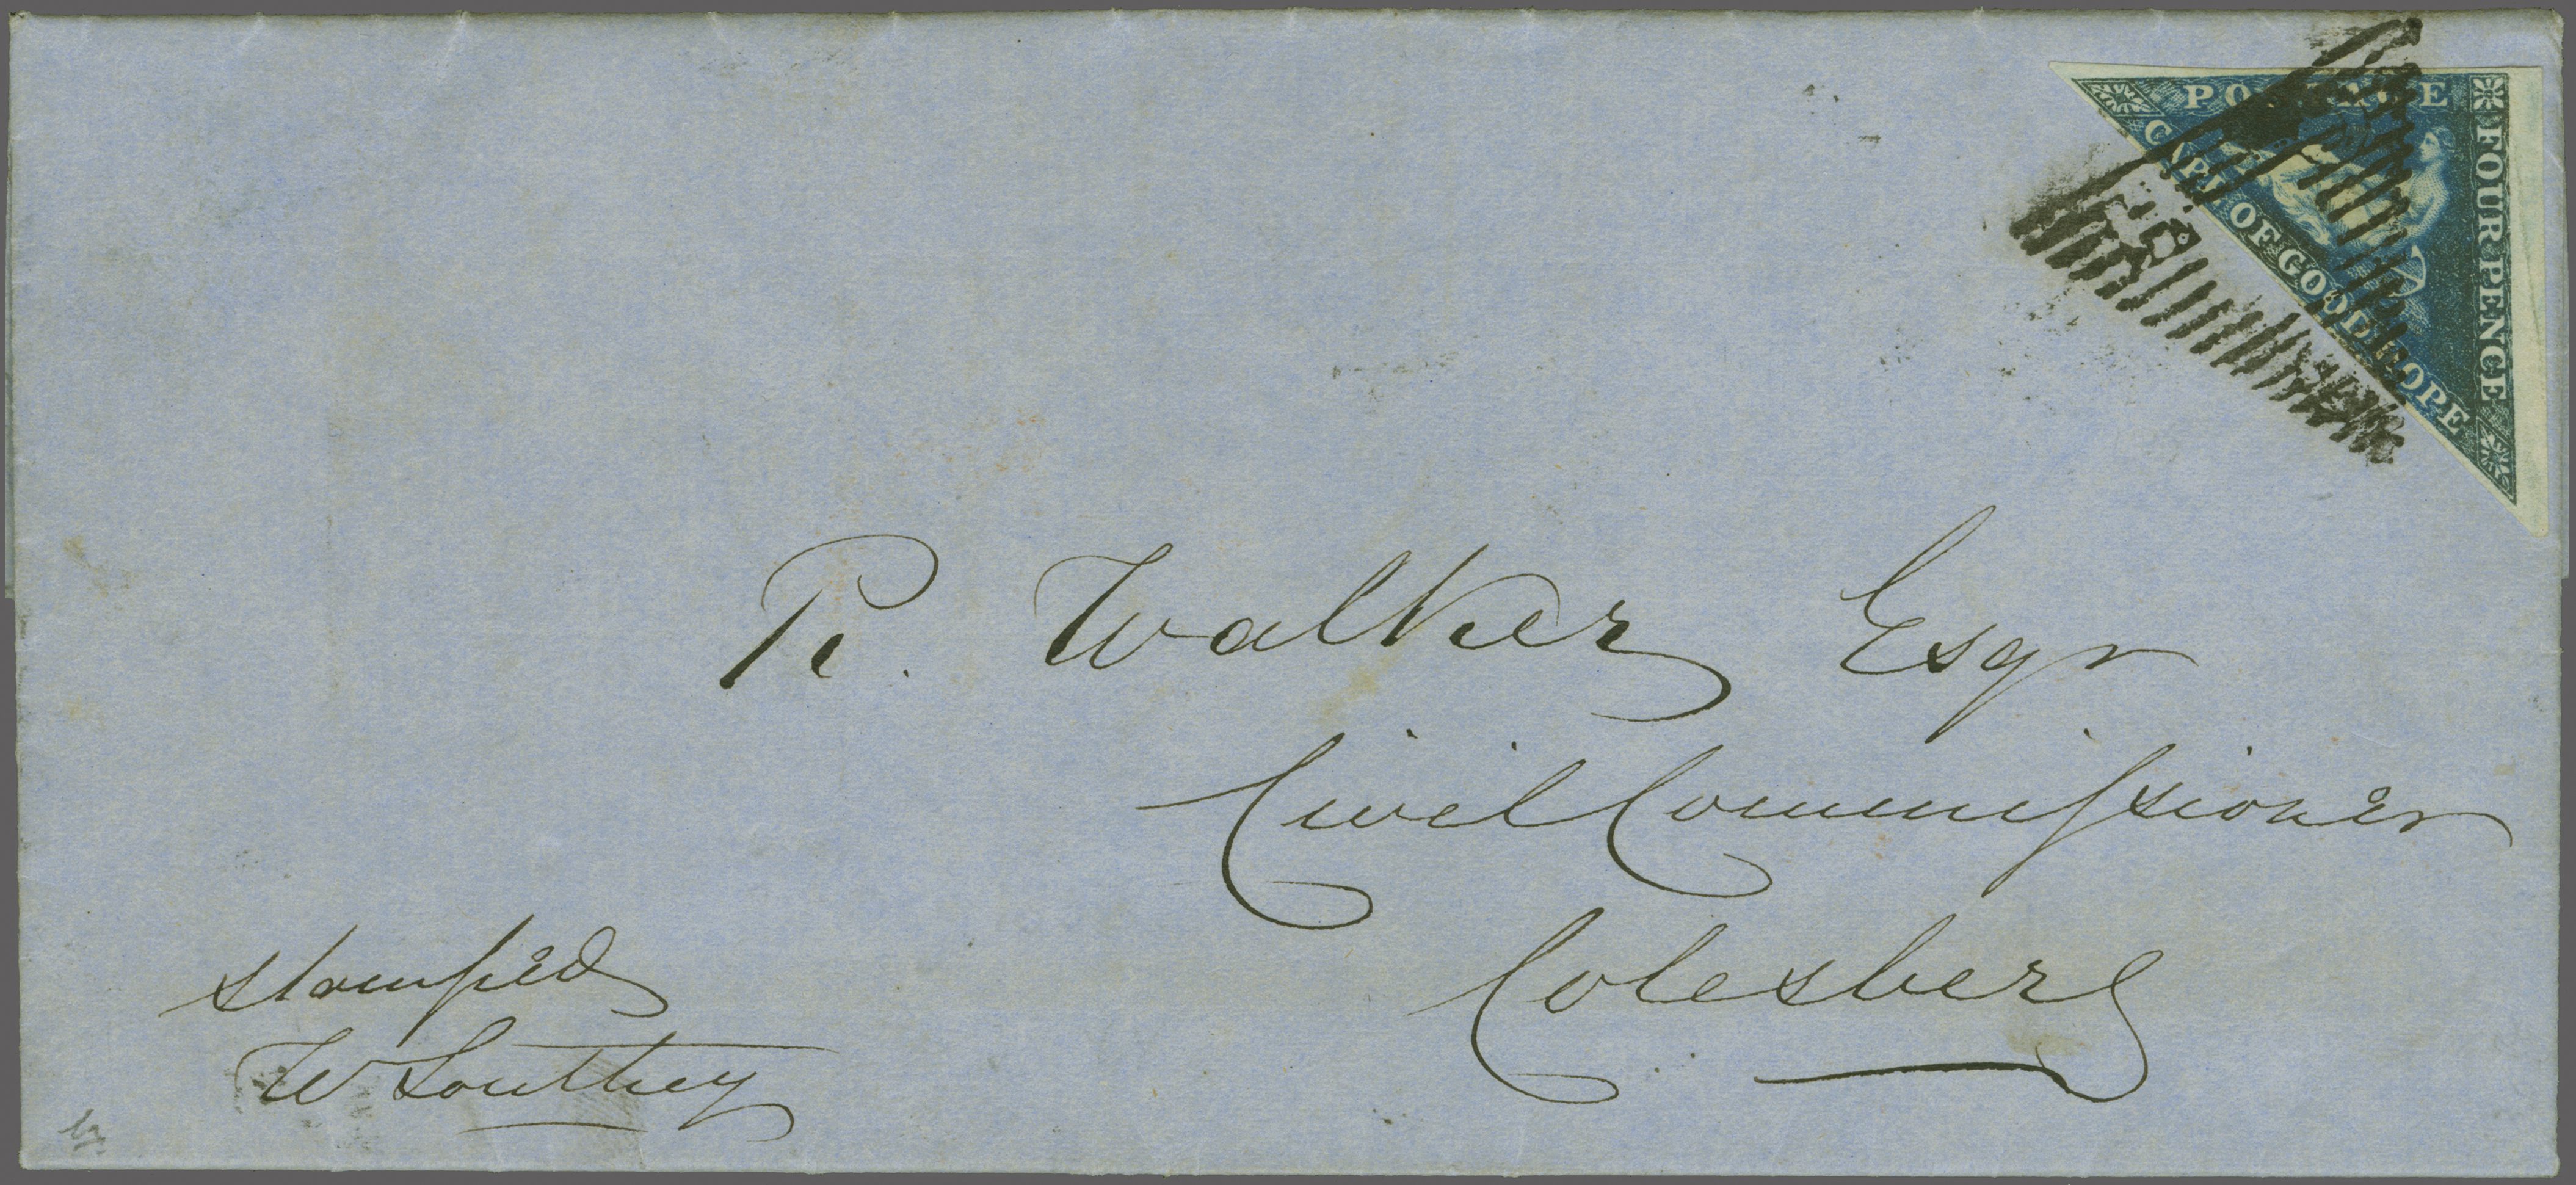 POSTAGE
FOUR PENCE
CAPE OF GOOD HOPE
R. Walker Esqr
Civil Commissioner
Colesberg
stamped
W Southey